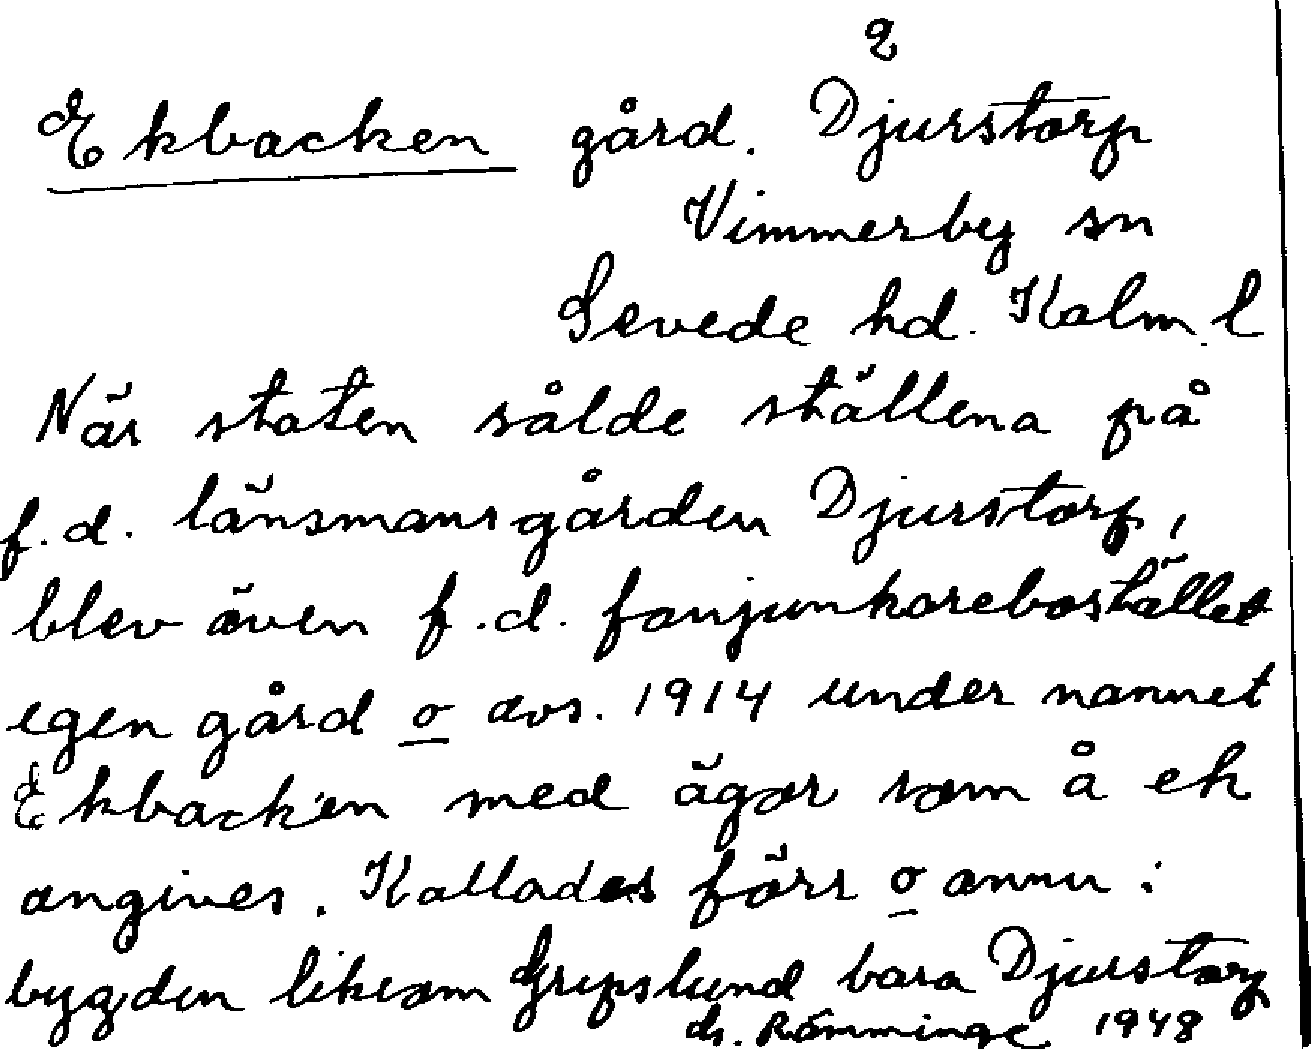 2
Ekbacken gård. Djurstorp
Vimmerby sn
Sevede hd. Kalm. l
När staten sålde ställena på
f.d. länsmansgården Djurstorp,
blev även f.d. fanjunkarebostället
egen gård o avs. 1914 under namnet
Ekbacken med ägor som å ek
angives. Kallades förr o ännu i
bygden liksom Gripslund bara Djurstorp
ds. Römminge 1948